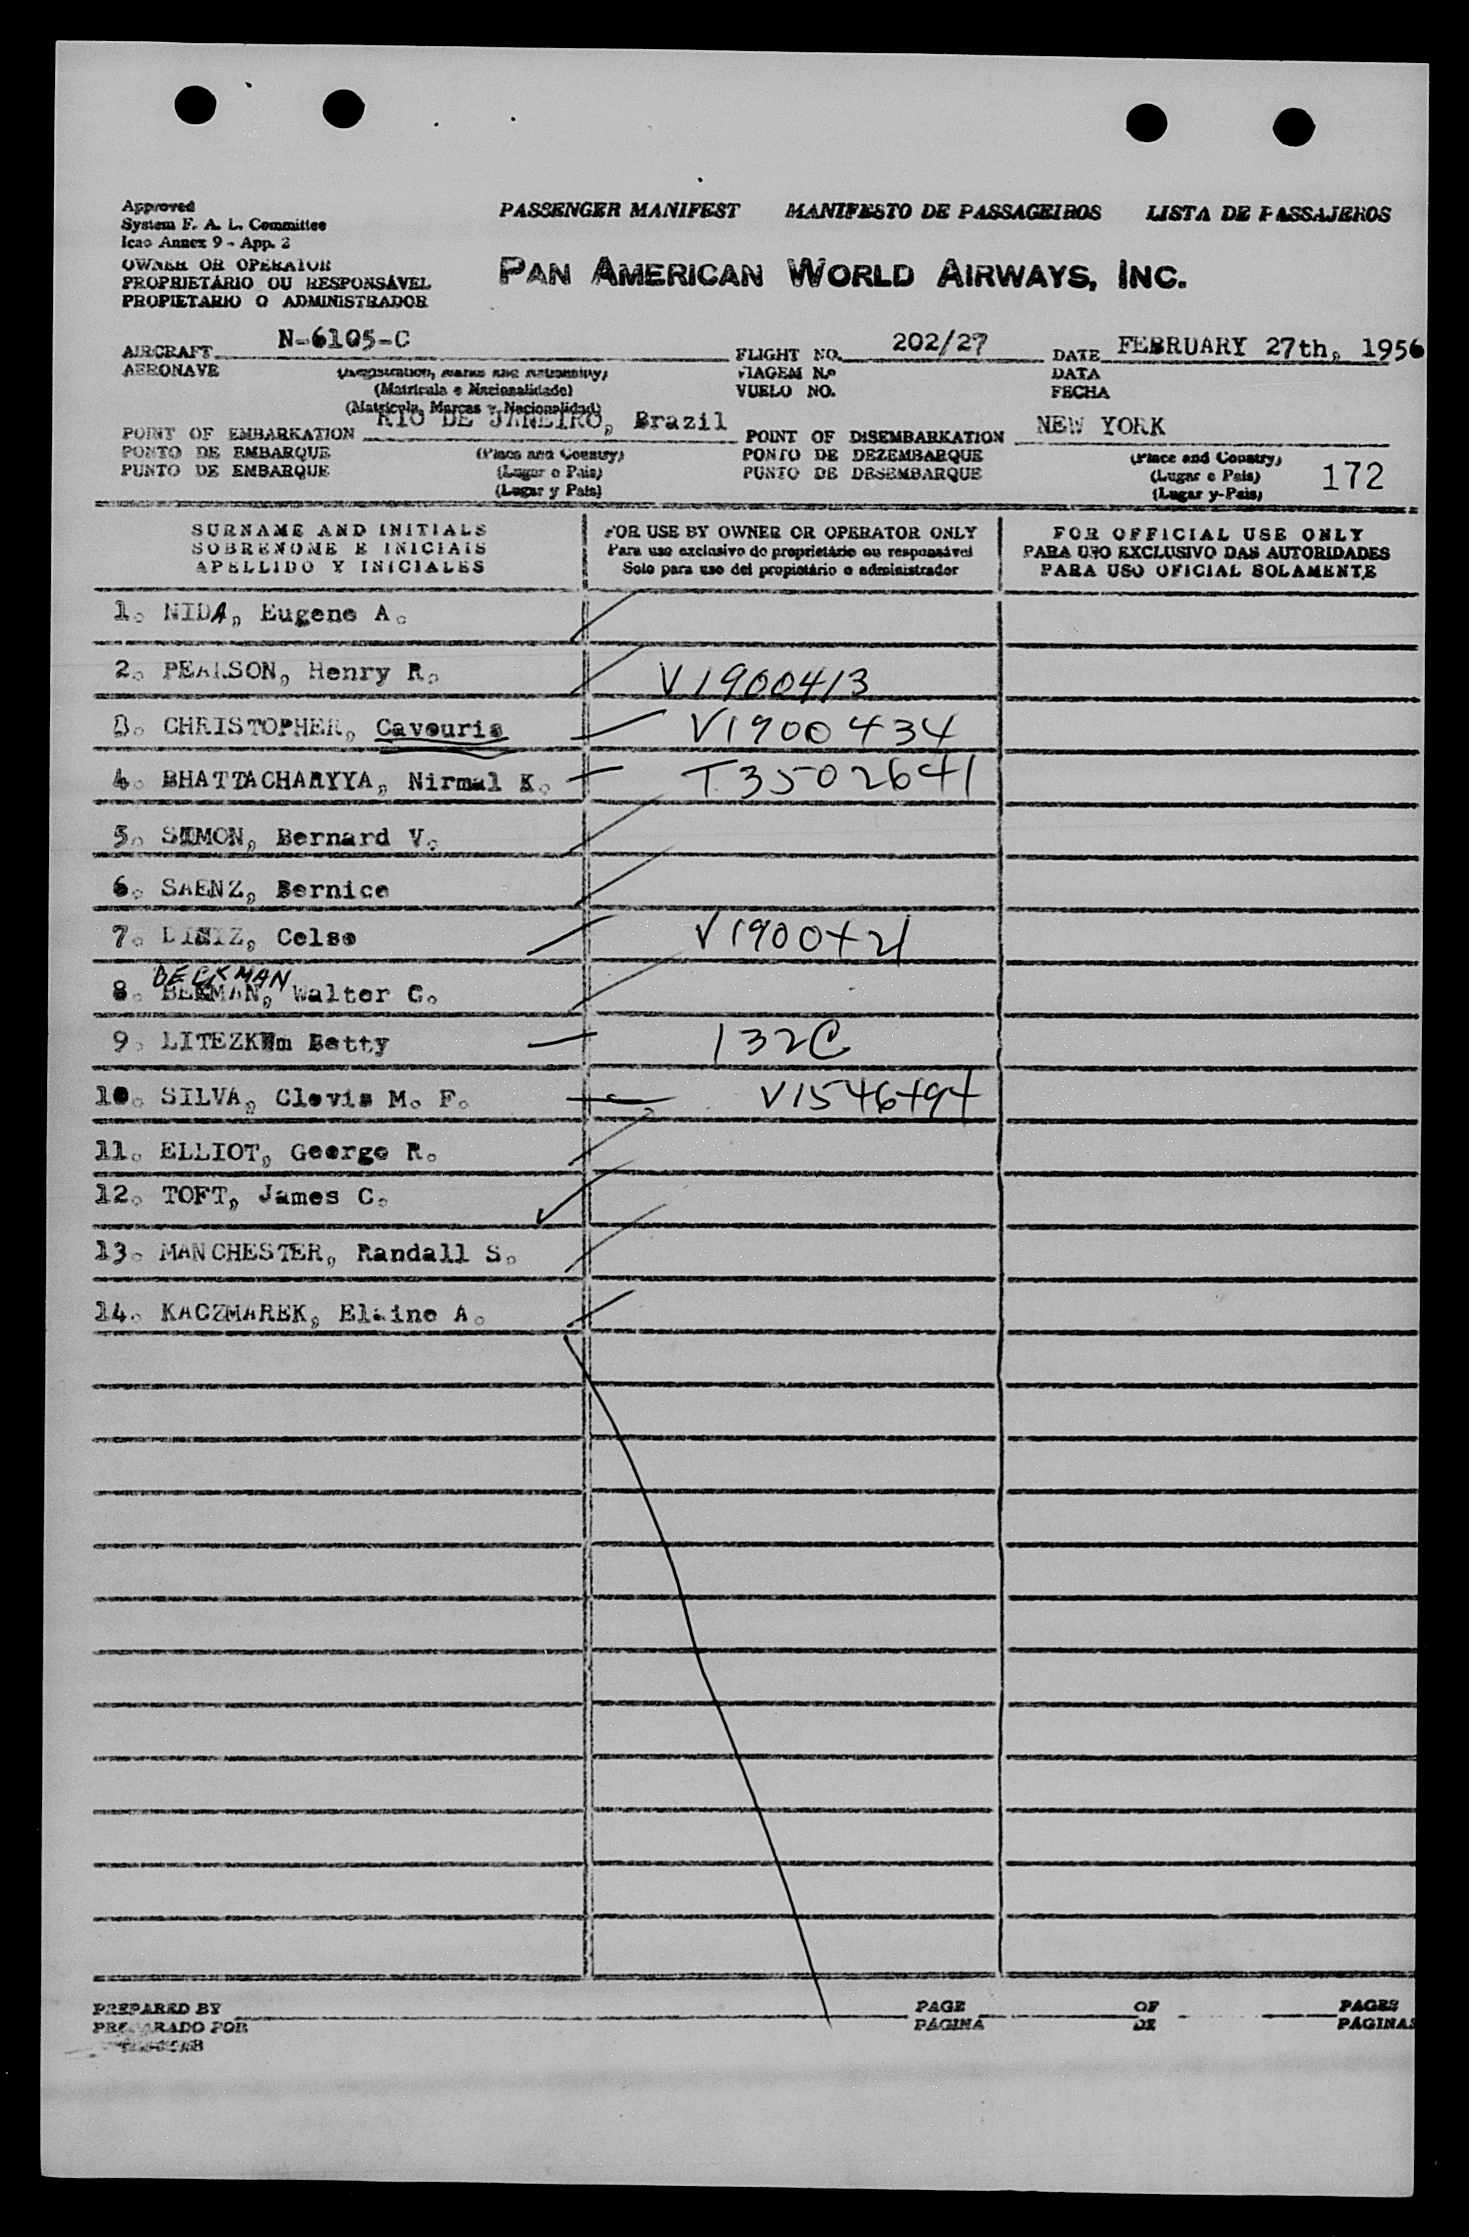 Approved
System F. A. L. Committee
Icao Annex 9 - App. 2
PASSENGER MANIFEST MANIFESTO DE PASSAGEIROS LISTA DE PASSAJEROS
OWNER OR OPERATOR
PROPRIETÁRIO OU RESPONSÁVEL
PROPIETARIO O ADMINISTRADOR
PAN AMERICAN WORLD AIRWAYS, INC.
AIRCRAFT N-6105-C FLIGHT NO. 202/27 DATE FEBRUARY 27th, 1956
AERONAVE (Registration, marks and nationality) VIAGEM N.º DATA
(Matricula e Nacionalidade) VUELO NO. FECHA
(Matricula, Marcas y Nacionalidad)
POINT OF EMBARKATION RIO DE JANEIRO, Brazil POINT OF DISEMBARKATION NEW YORK
PONTO DE EMBARQUE (Place and Country) PONTO DE DEZEMBARQUE (Place and Country)
PUNTO DE EMBARQUE (Lugar e Pais) PUNTO DE DESEMBARQUE (Lugar e Pais) 172
(Lugar y Pais) (Lugar y Pais)
SURNAME AND INITIALS FOR USE BY OWNER OR OPERATOR ONLY FOR OFFICIAL USE ONLY
SOBRENOME E INICIAIS Para uso exclusivo do proprietário ou responsável PARA USO EXCLUSIVO DAS AUTORIDADES
APELLIDO Y INICIALES Solo para uso del propietário o administrador PARA USO OFICIAL SOLAMENTE
1. NIDA, Eugene A.
2. PEARSON, Henry R. V1900413
3. CHRISTOPHER, Cavouris V1900434
4. BHATTACHARYYA, Nirmal K. T3502641
5. SIMON, Bernard V.
6. SAENZ, Bernice
7. DINIZ, Celso V1900421
BECKMAN
8. BEKMAN, Walter C.
9. Betty 132C
10. SILVA, Clovis M. F. V1546494
11. ELLIOT, George R.
12. TOFT, James C.
13. MANCHESTER, Randall S.
14. KACZMAREK, Elaine A.
PREPARED BY PAGE OF PAGES
PREPARADO POR PÁGINA DE PÁGINAS